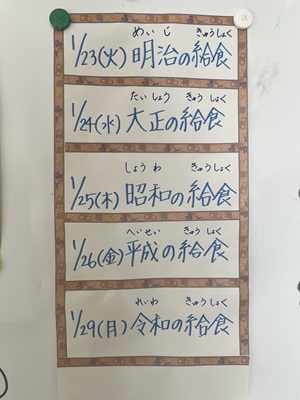 めいじ きゅうしょく
1/23(火) 明治の給食
たいしょう きゅうしょく
1/24(水) 大正の給食
しょうわ きゅうしょく
1/25(木) 昭和の給食
へいせい きゅうしょく
1/26(金) 平成の給食
れいわ きゅうしょく
1/29(月) 令和の給食